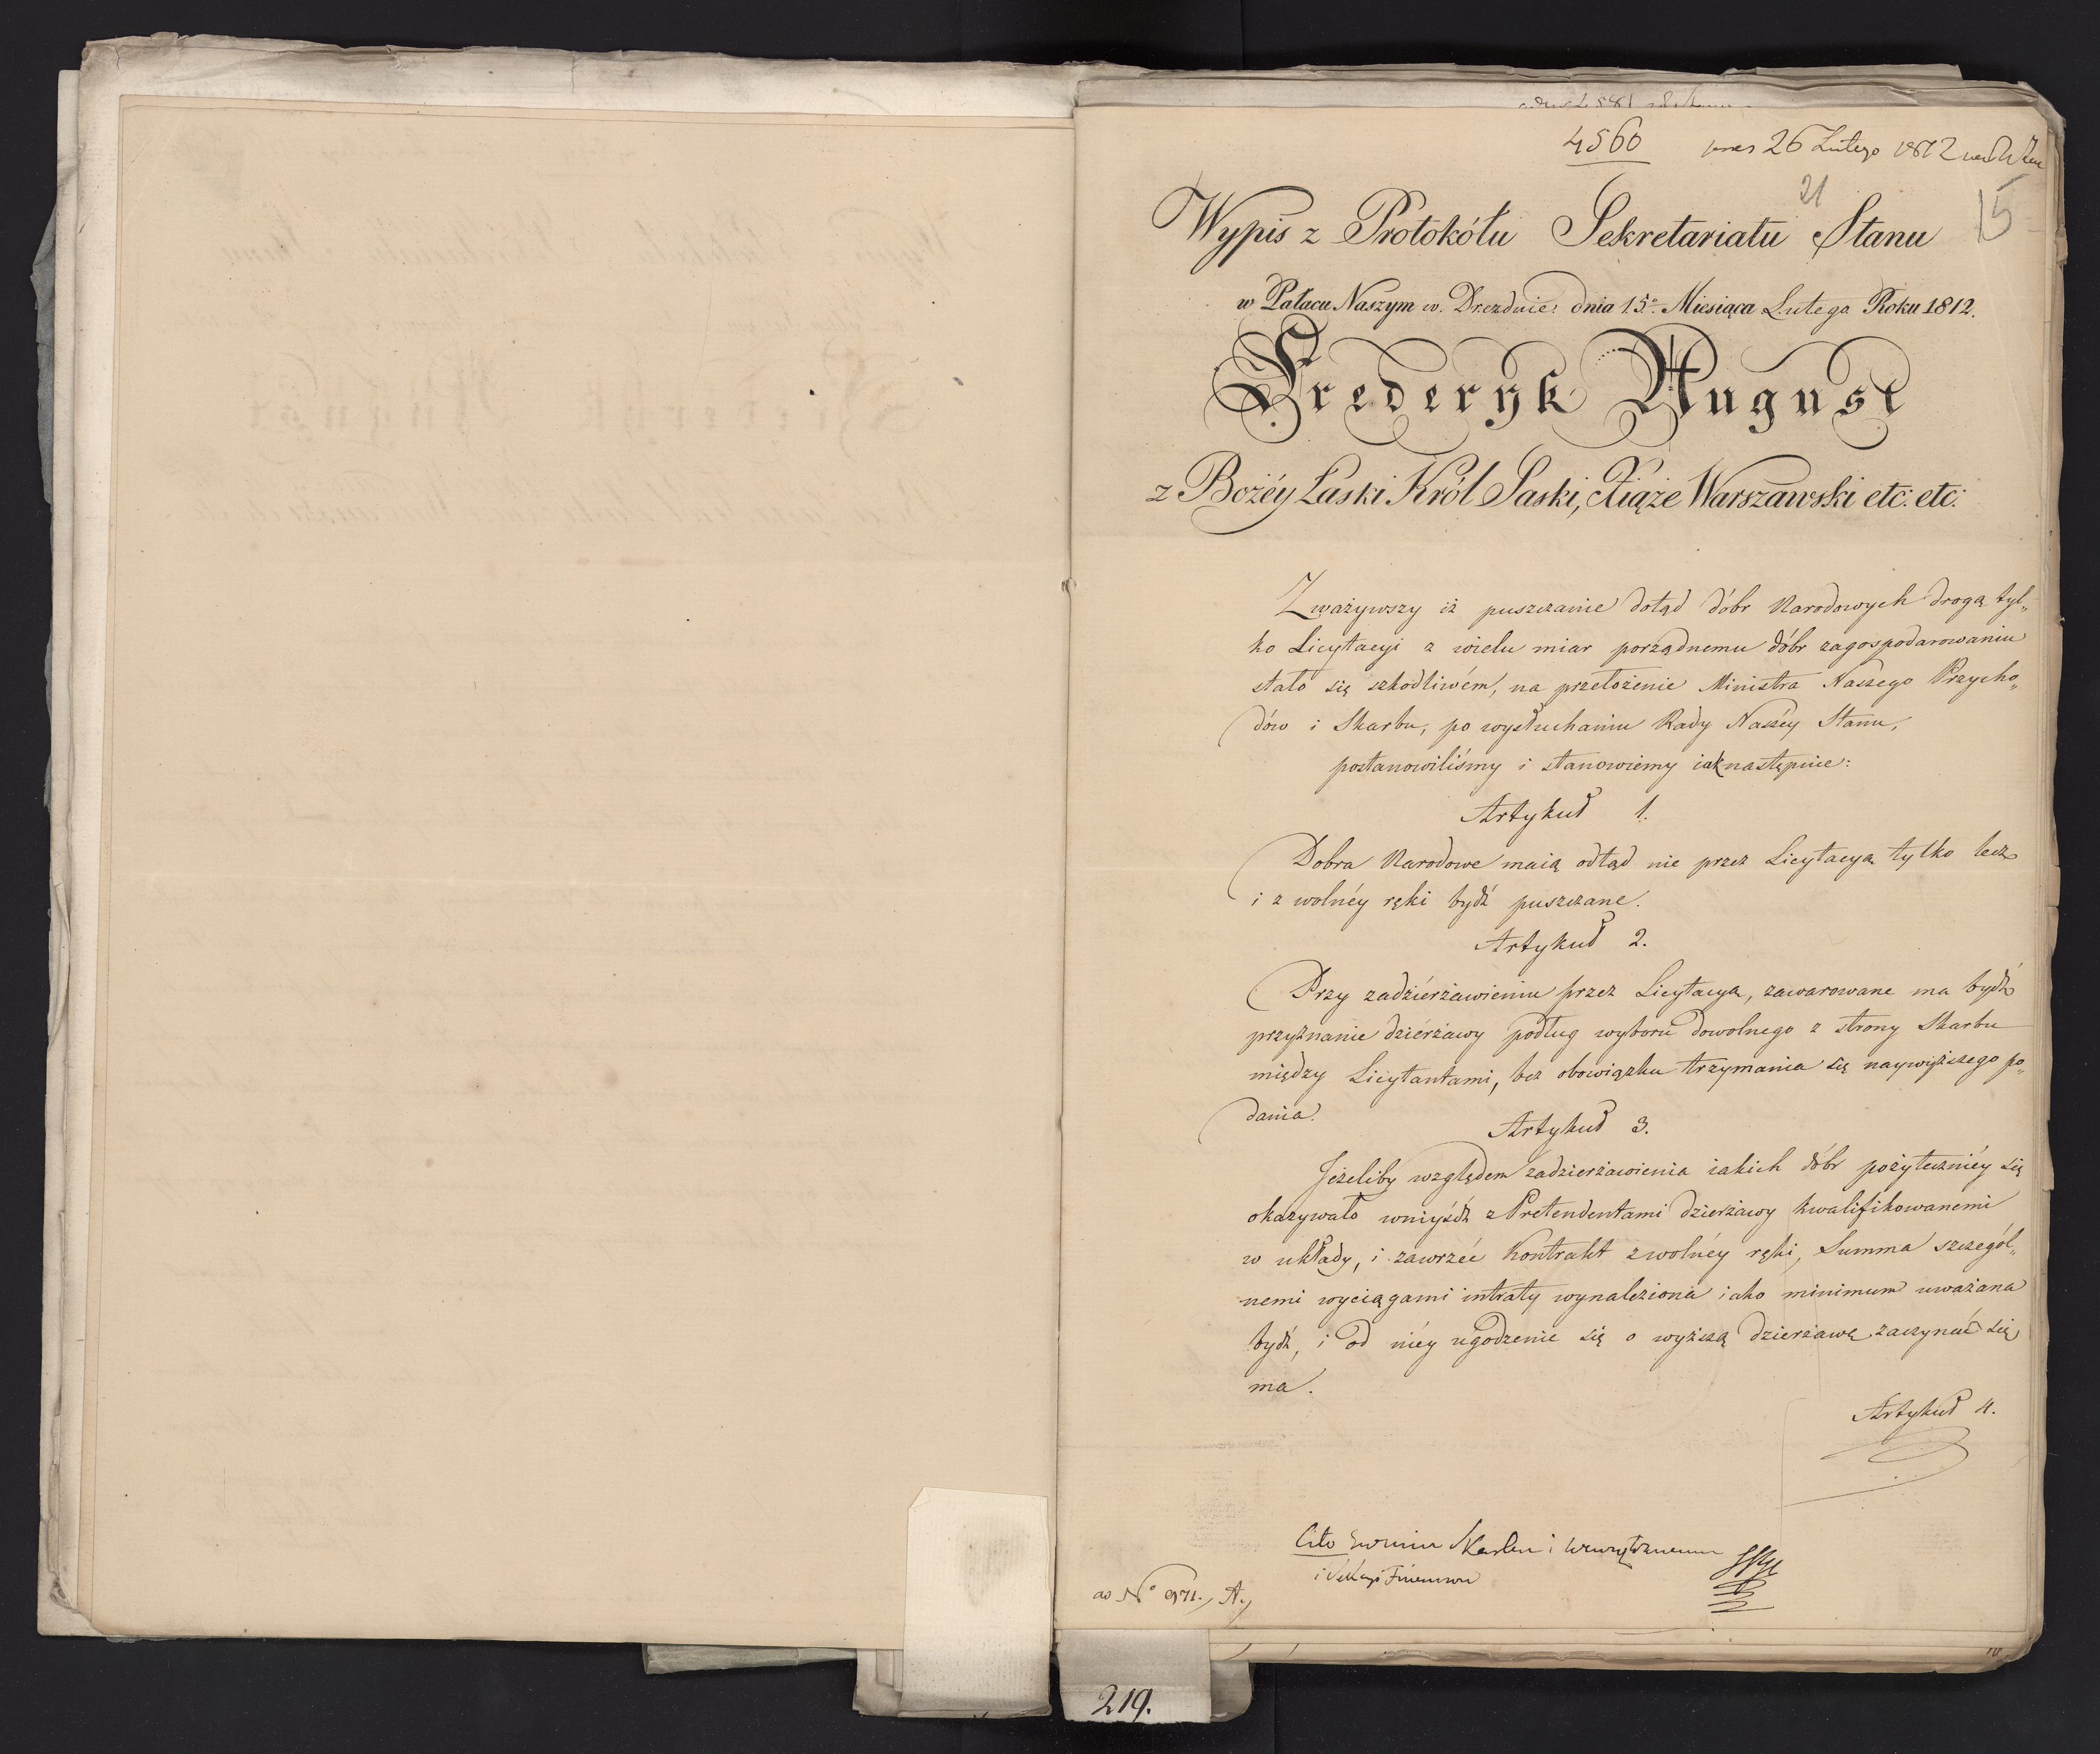 4560 26 Lutego 1812
21
15
Wypis z Protokółu Sekretariatu Stanu
w Pałacu Naszym w Dreźdnie dnia 15. Miesiąca Lutego Roku 1812.
Fryderyk August
z Bożéy Łaski Król Saski, Xiąże Warszawski etc: etc:
Zważywszy iż puszczanie dotąd dóbr Narodowych drogą tyl„
ko Licytacyi z wielu miar porządnemu dóbr zagospodarowaniu
stało się szkodliwém, na przełożenie Ministra Naszego Przycho„
dów i Skarbu, po wysłuchaniu Rady Naszéy Stanu,
postanowiliśmy i stanowiemy iak następuie:
Artykuł 1.
Dobra Narodowe maią odtąd nie przez Licytacyą tylko lecz
i z wolnéy ręki bydź puszczane.
Artykuł 2.
Przy zadzierżawieniu przez Licytacyą, zawarowane ma bydź
przyznanie dzierżawy podług wyboru dowolnego z strony Skarbu
między Licytantami, bez obowiązku trzymania się naywyższego po„
dania.
Artykuł 3.
Jeżeliby względem zadzierżawienia iakich dóbr pożyteczniéy się
okazywało wniyśdź z Pretendentami dzierżawy kwalifikowanemi
w układy, i zawrzeć Kontrakt z wolnéy ręki, Summa szczegól„
nemi wyciągami intraty wynaleziona iako minimum uważana
bydź, i od niéy ugodzenie się o wyższą dzierżawę zaczynać się
ma.
Artykuł 4.
Cito Skarbu i
i
ad No 971. A.
219.